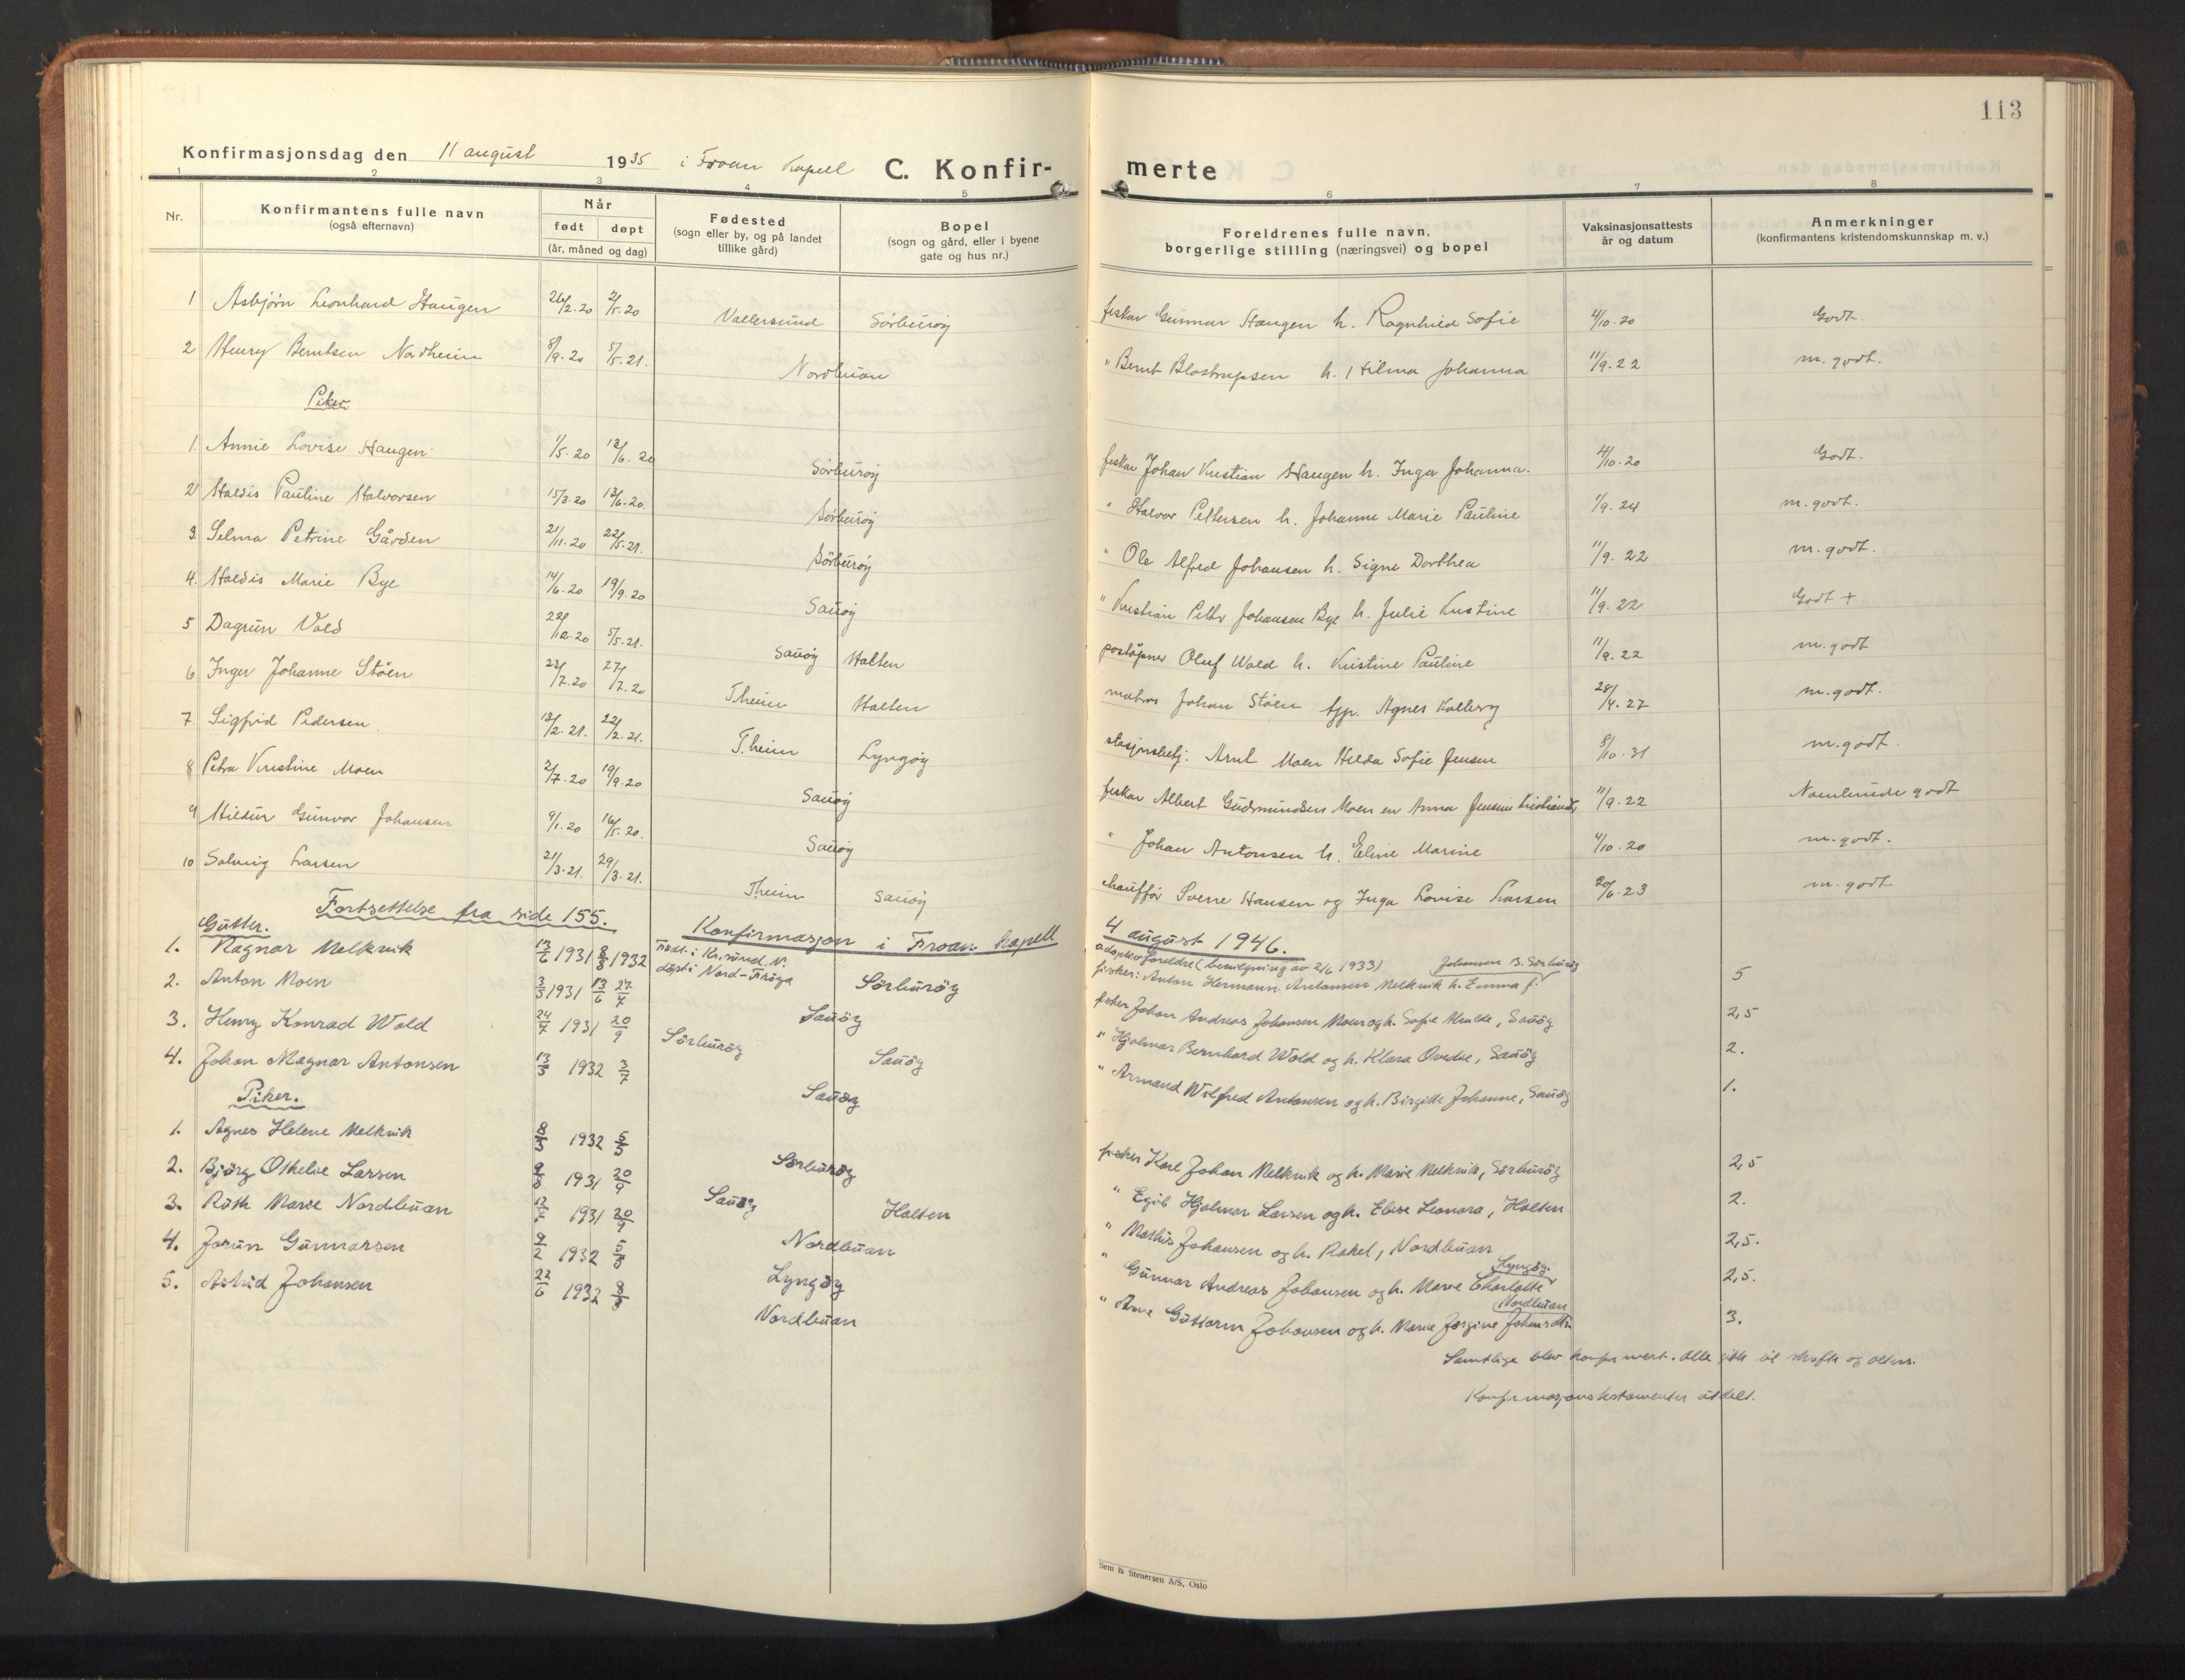 113
Konfirmasjonsdag den 11 august 1935 i Froan kapell C. Konfir-merte
1 2 3 4 5 6 7 8
Nr. Konfirmantens fulle navn (også efternavn) Når født døpt (år, måned og dag) Fødested (sogn eller by, og på landet tillike gård) Bopel (sogn og gård, eller i byene gate og hus nr.) Foreldrenes fulle navn, borgerlige stilling (næringsvei) og bopel Vaksinasjonsattests år og datum Anmerkninger (konfirmantens kristendomskunnskap m. v.)
1 Asbjörn Leonhard Haugen 26/2.20 2/5.20 Vallersund Sörburöy fisker Gunnar Haugen h. Ragnhild Sofie 4/10.20 Godt.
2 Henry Berntsen Nordheim 8/9.20 5/5.21. Nordbuan " Bernt Blostrupsen h. Hilma Johanna 11/9.22 m. godt.
Piker
1. Annie Lovise Haugen 1/5.20 13/6.20 Sörburöy fisker Johan Kristian Haugen h. Inga Johanna. 4/10.20 Godt.
2 Haldis Pauline Halvorsen 15/3.20 13/6.20. Sörburöy " Halvor Pettersen h. Johanne Marie Pauline 1/9.24 m. godt.
3. Selma Petrine Gården 21/11.20 22/5.21. Sörburöy " Ole Alfred Johansen h. Signe Dorthea 11/9.22 m. godt.
4. Haldis Marie Bye 14/6.20 19/9.20 Sauöy " Kristian Petter Johansen Bye h. Julie Kristine 11/9.22 Godt +
5 Dagrun Vold 22/12.20 5/5.21. Sauöy Halten poståpner Oluf Wold h. Kristine Pauline 11/9.22 m. godt
6 Inger Johanne Stöen 23/7.20 27/7.20 T.heim Halten matros Johan Stöen Agnes Kolberg 28/4.27 m. godt.
7. Sigfrid Pedersen 13/2.21. 22/2.21. T.heim Lyngöy stasjonsbetj. Arnt Moen Hilda Sofie Jensen 8/10.31 m. godt.
8 Petra Kristine Moen 2/7.20 19/9.20 Sauöy fisker Albert Gudmundsen Moen en Anna Jensine 11/9.22 Noenlunde godt
9 Hildur Gunvor Johansen 9/1.20 16/5.20. Sauöy " Johan Antonsen h. Eline Marine 4/10.20 m. godt.
10 Solveig Larsen 21/3.21. 29/3.21. T.heim Sauöy chaufför Sverre Hansen og Inga Lovise Larsen 20/6.23 m. godt
Fortsettelse fra side 155. Konfirmasjon i Froan kapell 4 august 1946.
Gutter.
1. Ragnar Melkvik 13/6 1931 8/3 1932 Född i Kr.sund. N. döpt i Nord-Fröya Sörburöy adoptivforeldre (bevilgning av 2/6 1933) Johansen B. Sörburöy
fisker: Anton Hermann Antonsen Melkvik h. Emma f. 5
2. Anton Moen 3/3 1931 13/6 27/4 Sauöy fisker Johan Andreas Johansen Moen og h. Sofie Hulde, Sauöy 2,5
3. Henry Konrad Wold 24/7 1931 20/9 Sörburöy Sauöy " Hjalmar Bernhard Wold og h. Klara Ovedie, Sauöy 2.
4. Johan Magnar Antonsen 13/3 1932 3/7 Sauöy " Armand Wilfred Antonsen og h. Birgitte Johanne, Sauöy 1.
Piker.
1. Agnes Helene Melkvik 8/3 1932 5/5 Sörburöy fisker Karl Johan Melkvik og h. Marie Melkvik, Sörburöy 2,5
2. Bjórg Othelie Larsen 1931 20/9 Sauöy Halten " Egil Hjalmar Larsen og h. Elise Leonora, Halten 2.
3. Ruth Marie Nordbuan 1931 20/9 Nordbuan " Mathis Johansen og h. Rakel, Nordbuan 2,5.
4. Jorun Gunnarsen 9/2 1932 5/8 Lyngöy " Gunnar Andreas Johansen og h. Marie Charlotte Lyngöy. 2,5.
5. Astrid Johansen 22/6 1932 Nordbuan " Arne Guttorm Johansen og h. Marie Jörgine Johansdtr. Nordbuan 3.
Samtlige blev konfirmert. Alle gikk til skrifte og alters.
Konfirmasjonstestamenter utdelt.
Sem & Stenersen A/S, Oslo